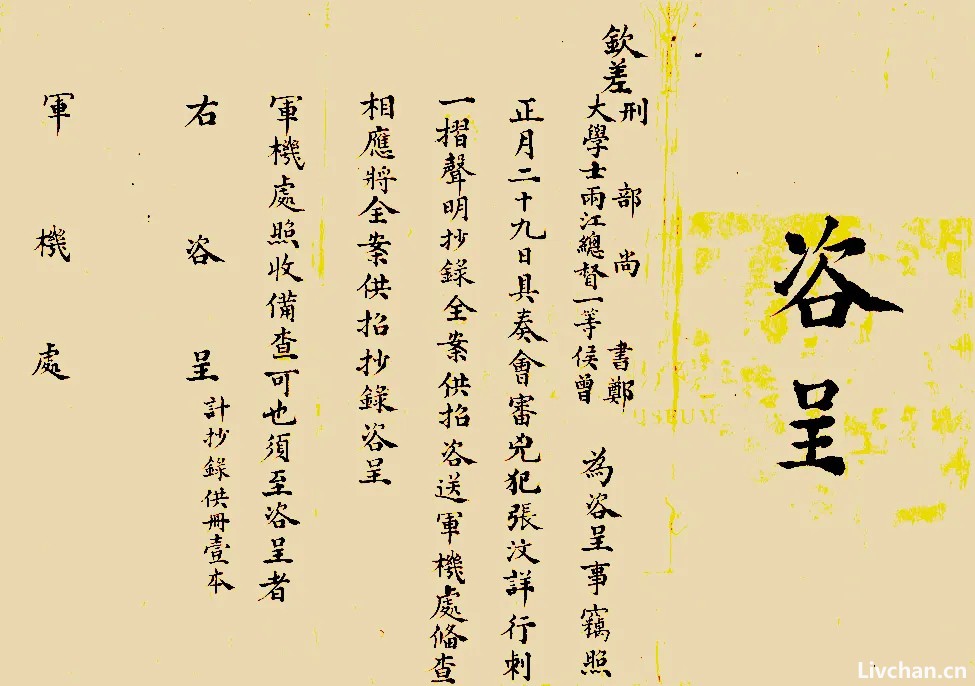 咨呈
欽差
刑部尚書鄭
大學士兩江總督一等侯曾
為咨呈事竊照
正月二十九日具奏會審兇犯張汶詳行刺
一摺聲明抄錄全案供招咨送軍機處俻查
相應將全案供招抄錄咨呈
軍機處照收備查可也須至咨呈者
計抄錄供冊壹本
右咨呈
軍機處
Livchan.cn